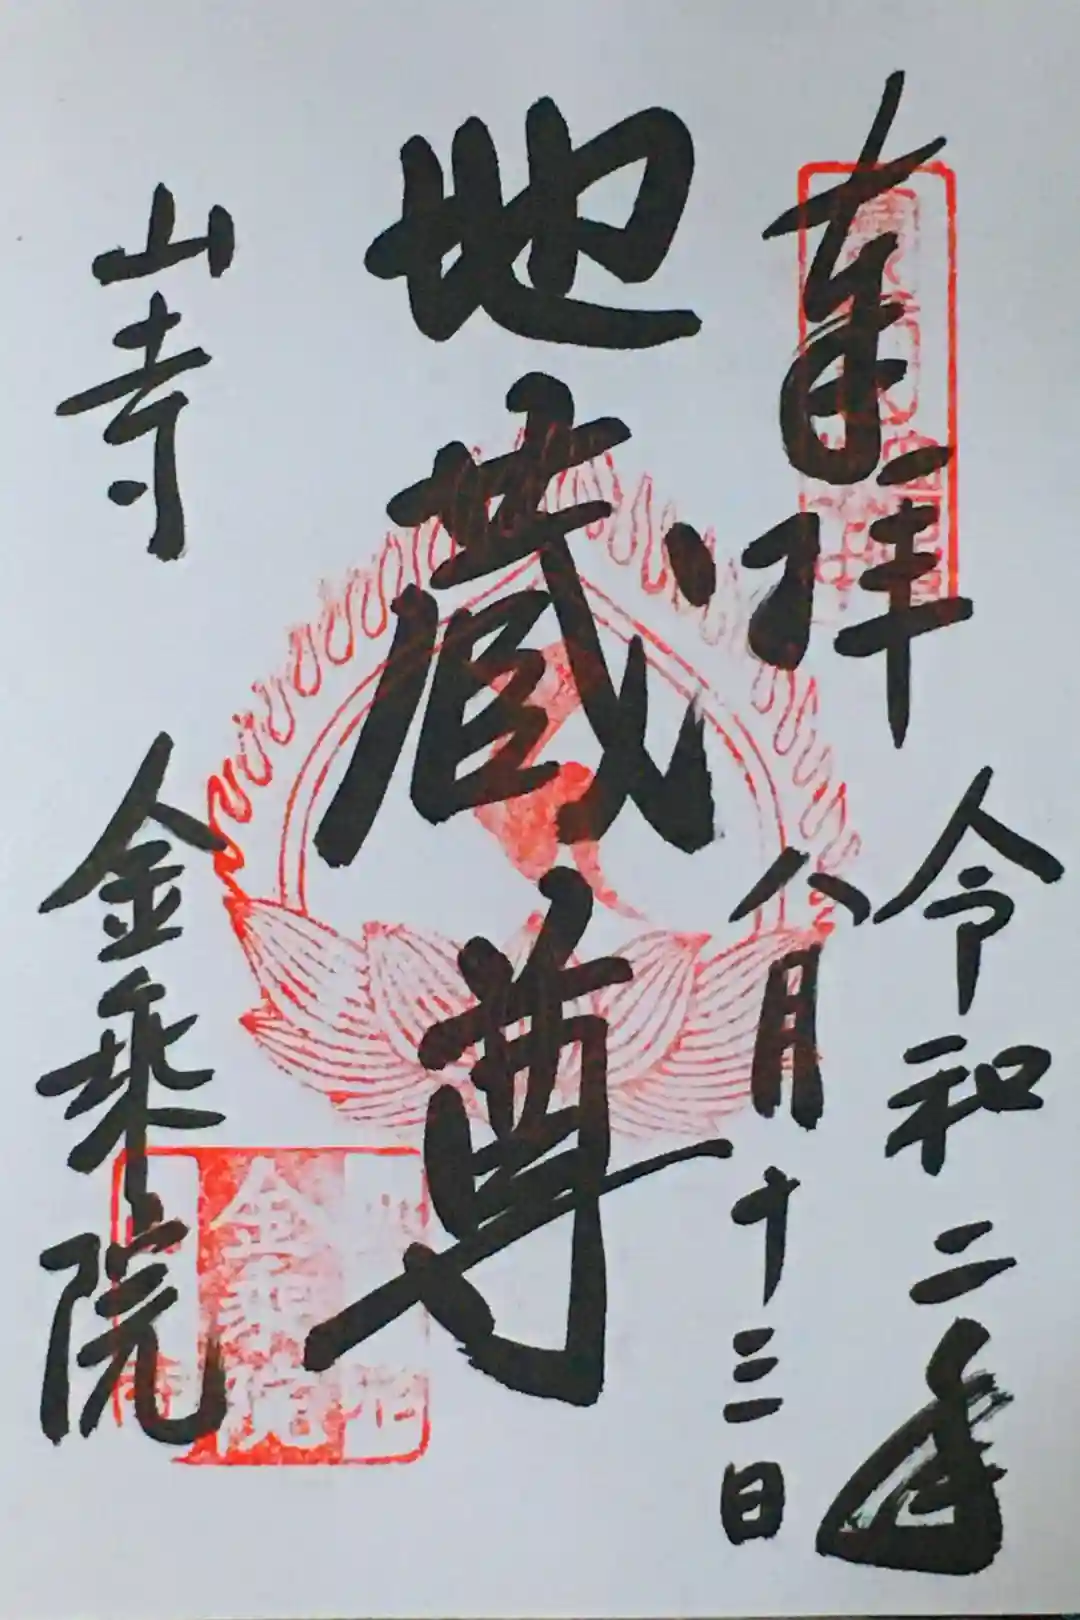 奉拝
令和二年
八月十三日
地蔵尊
山寺
金乗院
金乗院